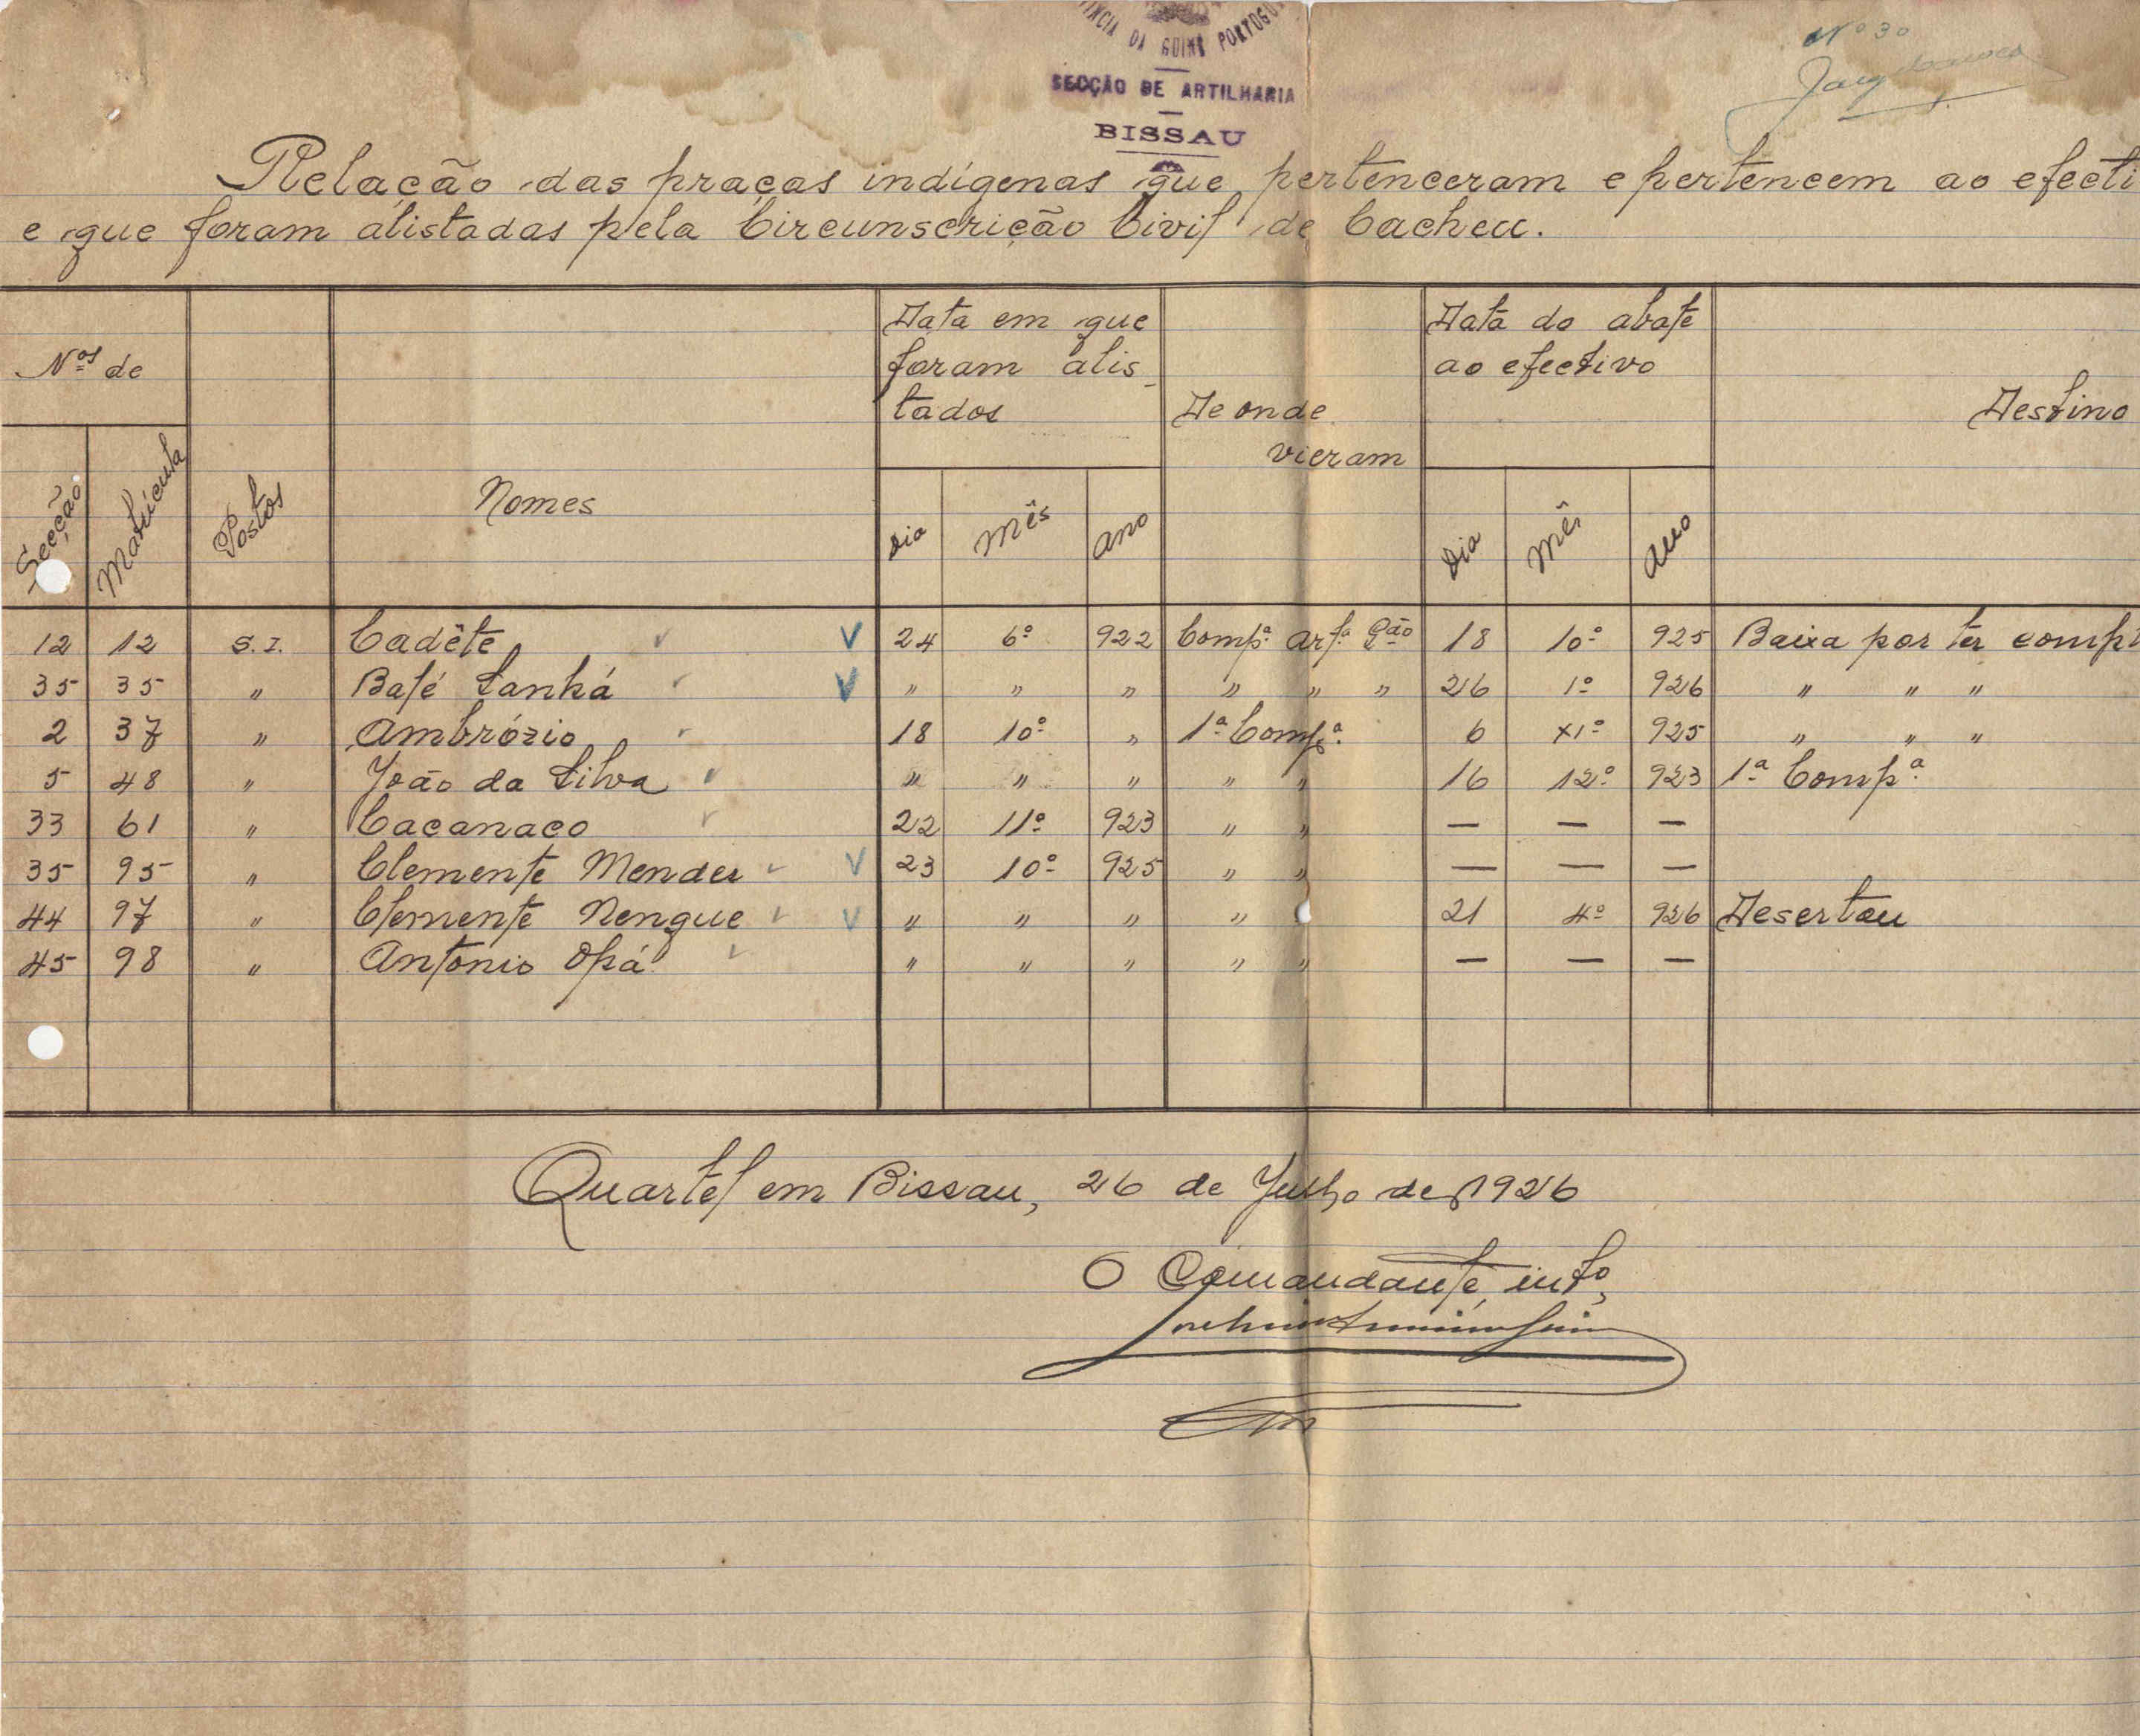 DA GUINÉ
SECÇÃO DE ARTILHARIA
BISSAU
Nº 30
Relação das praças indígenas que pertenceram e pertencem ao efecti
e que foram alistadas pela Circunscrição Civil de Cacheu.
Nos de
Secção
Matricula
Postos
Nomes
Data em que
foram alis-
tados
dia
mês
ano
De onde
vieram
Data do abate
ao efectivo
dia
mês
ano
Destino
12 12 S.I. Cadête 24 6º 922 Compª Artª Gão 18 10º 925 Baixa por ter compl
35 35 " Bafé Sanhá " " " " " " 26 1º 926 " " "
2 37 " Ambrózio 18 10º " 1ª Compª 6 X1º 925 " " "
5 48 " João da Silva " " " " " 16 12º 923 1ª Compª
33 61 " Cacanaco 22 11º 923 " " — — —
35 95 " Clemente Mendes 23 10º 925 " " — — —
44 97 " Clemente Nengue " " " " 21 4º 926 Desertou
45 98 " António Opá " " " " " — — —
Quartel em Bissau, 26 de Julho de 1926
O Comandante, intº,